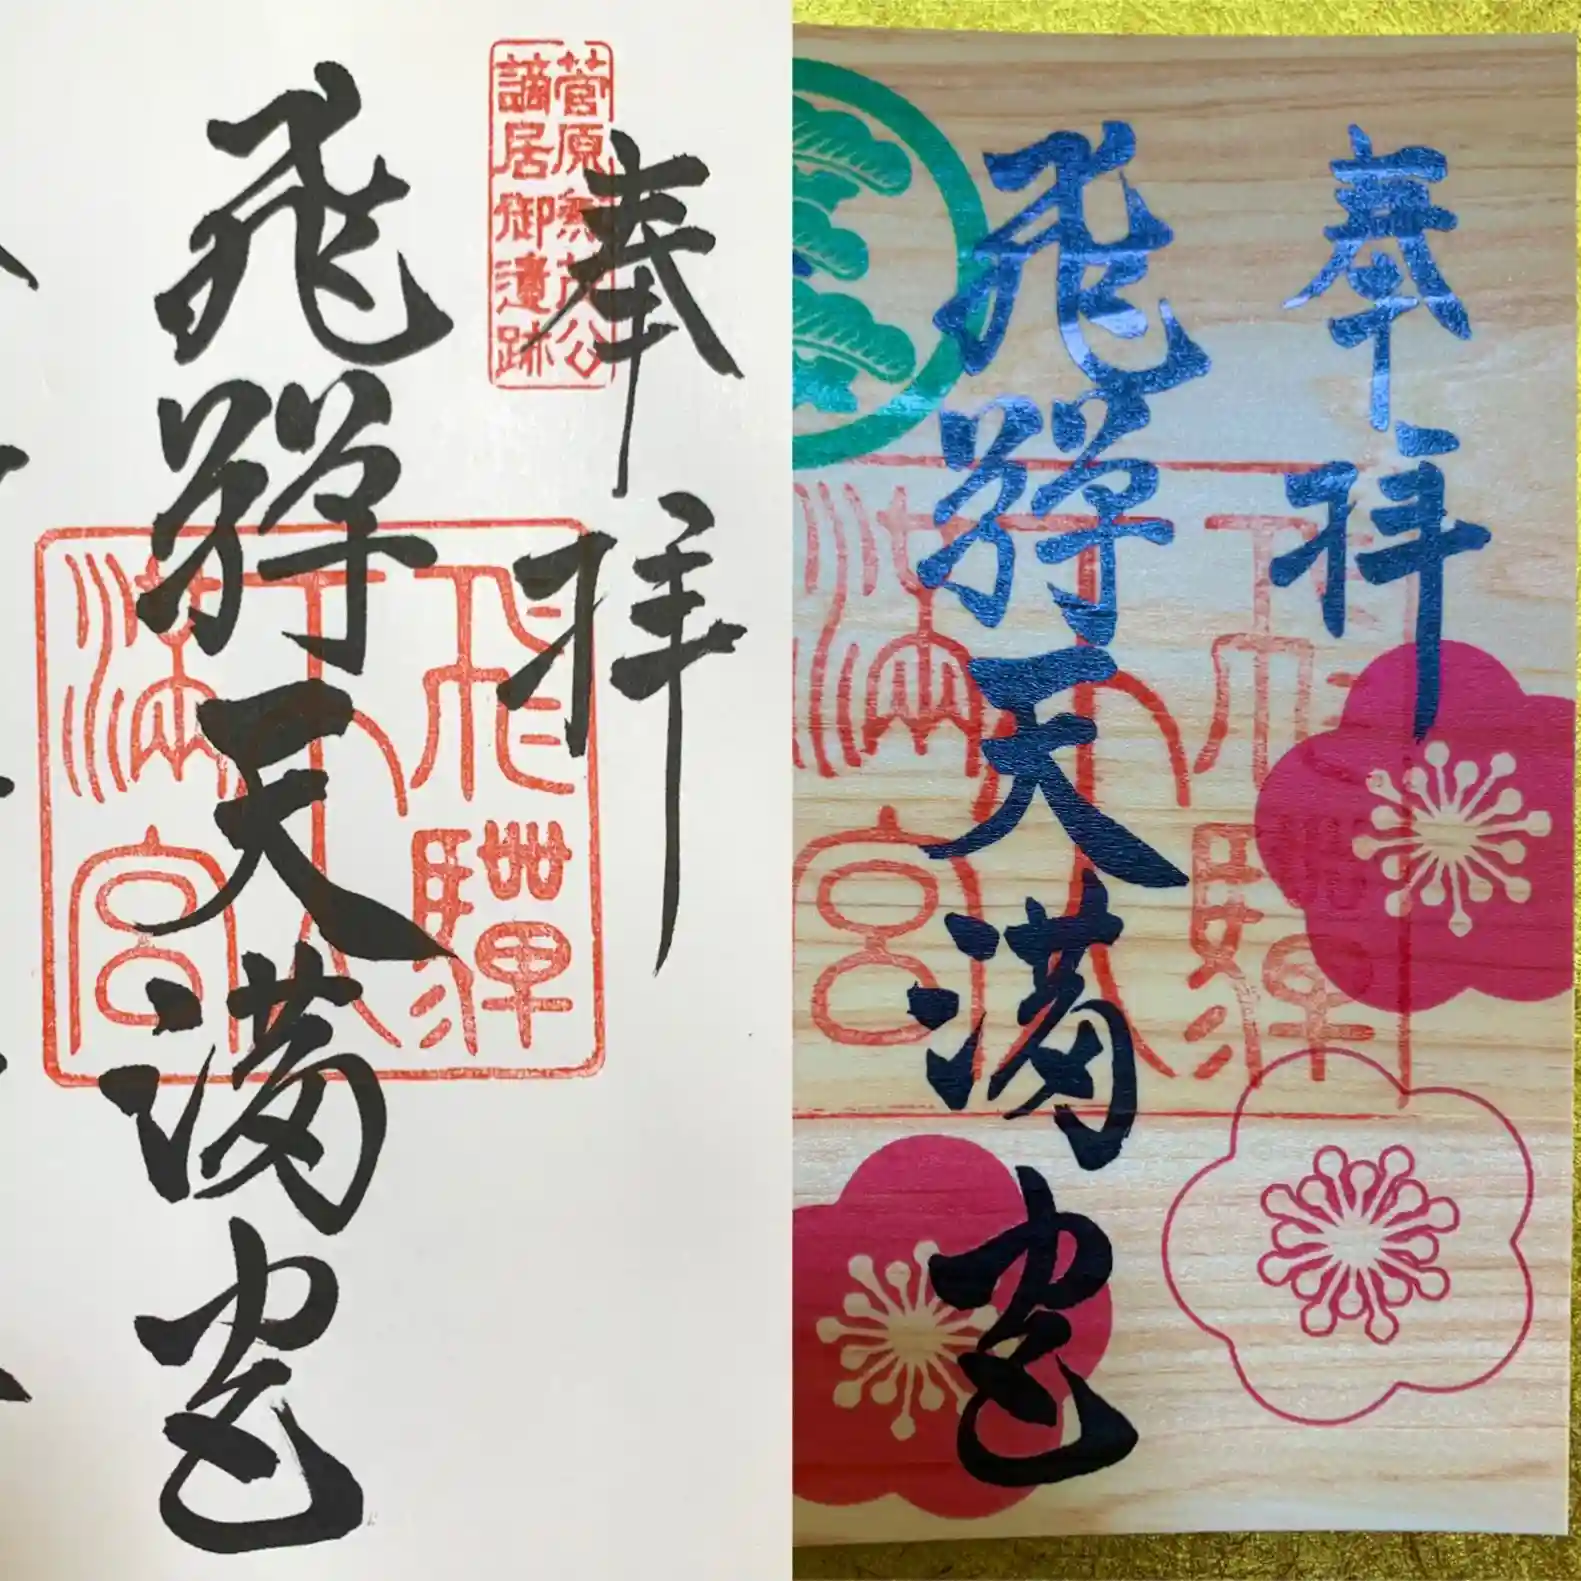 奉拝
菅原兼茂公
謫居御遺跡
飛騨天満宮
飛騨
天
満宮
奉拝
飛騨天満宮
飛騨
天
満宮